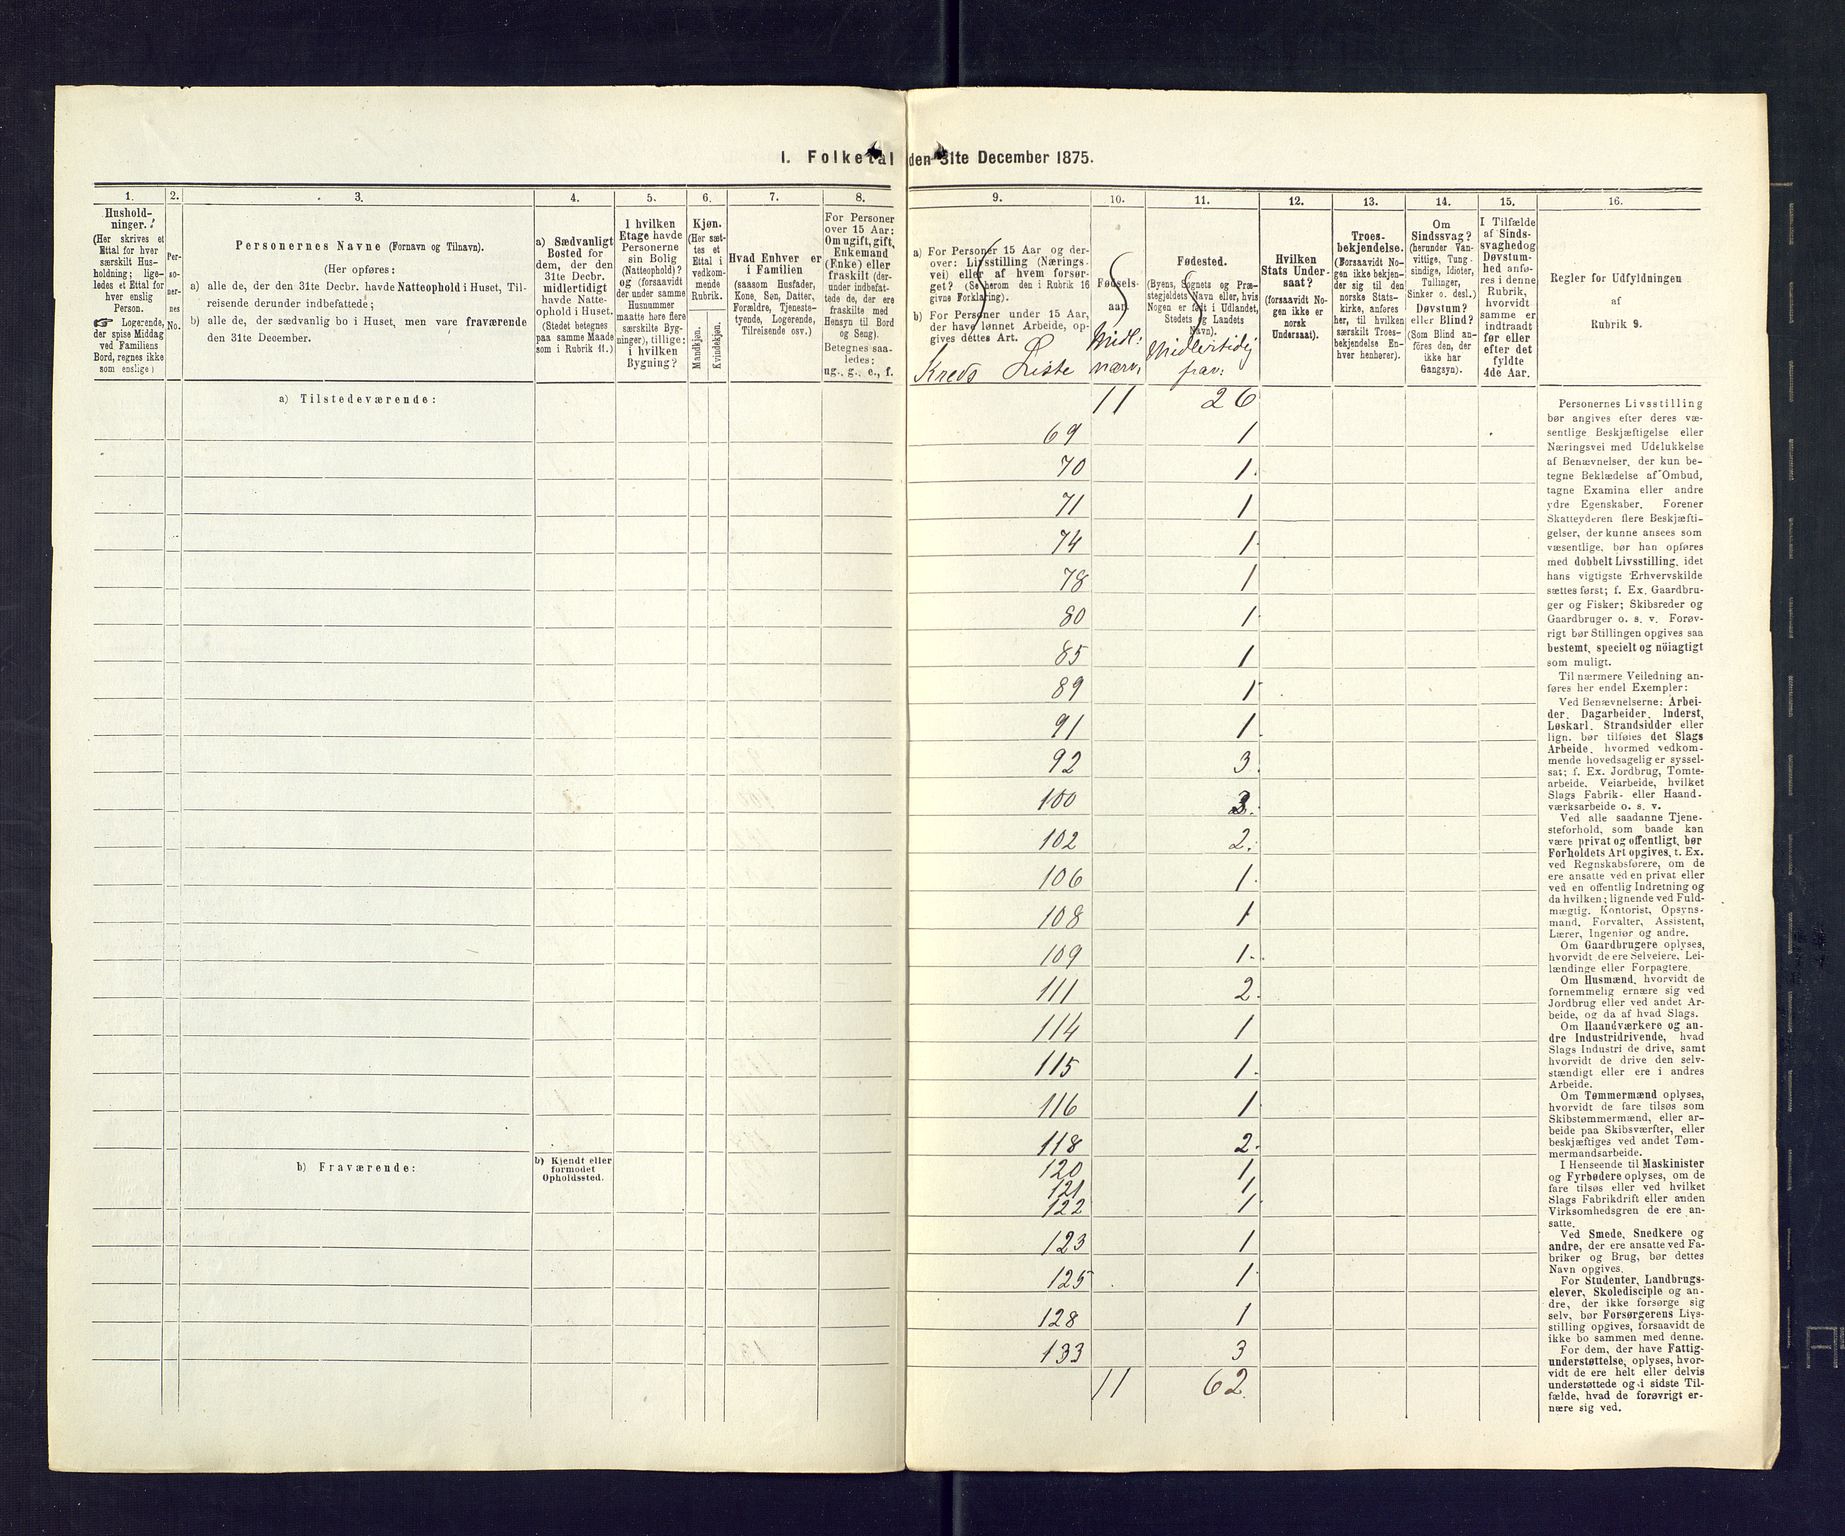 I. Folketal den 31te December 1875.
1.
2.
3.
4.
5.
6.
7.
8.
9.
10.
11.
12.
13.
14.
15.
16.
Hushold-
ninger.
(Her skrives et
Ettal for hver
særskilt Hus-
holdning; lige-
ledes et Ettal for
hver enslig
Person.
☞ Logerende,
der spise Middag
ved Familiens
Bord, regnes ikke
som enslige)
Per-
so-
ner-
nes
No.
Personernes Navne (Fornavn og Tilnavn).
(Her opføres:
a) alle de, der den 31te Decbr. havde Natteophold i Huset, Til-
reisende derunder indbefattede;
b) alle de, der sædvanlig bo i Huset, men vare fraværende
den 31te December.
a) Sædvanligt
Bosted for
dem, der den
31te Decbr.
midlertidigt
havde Natte-
ophold i Huset.
(Stedet betegnes
paa samme Maade
som i Rubrik 11.)
I hvilken
Etage havde
Personerne
sin Bolig
(Natteophold)?
og (forsaavidt
der under samme
Husnummer
maatte høre flere
særskilte Byg-
ninger), tillige:
i hvilken
Bygning?
Kjøn.
(Her sæt-
tes et
Ettal i
vedkom-
mende
Rubrik.
Mandkjøn.
Kvindekjøn.
Hvad Enhver er
i Familien
(saasom Husfader,
Kone, Søn, Datter,
Forældre, Tjeneste-
tyende, Logerende,
Tilreisende osv.)
For Personer
over 15 Aar:
Om ugift, gift,
Enkemand
(Enke) eller
fraskilt (der-
under indbefat-
tede de, der ere
fraskilte med
Hensyn til Bord
og Seng).
Betegnes saa-
ledes:
ug., g., e., f.
a) For Personer 15 Aar og der-
over: Livsstilling (Nærings-
vei) eller af hvem forsør-
get? (Se herom den i Rubrik 16
givne Forklaring).
b) For Personer under 15 Aar,
der have lønnet Arbeide, op-
gives dettes Art.
Kreds Liste
Fødsels-
aar.
Midl:
nærv:
Fødested.
(Byens, Sognets og Præ-
stegjeldets Navn eller, hvis
Nogen er født i Udlandet,
Stedets og Landets
Navn).
Midlertidig
frav:
Hvilken
Stats Under-
saat?
(forsaavidt No-
gen ikke er
norsk
Undersaat).
Troes-
bekjendelse.
(Forsaavidt No-
gen ikke bekjen-
der sig til den
norske Stats-
kirke, anføres
her, til hvilken
særskilt Troes-
bekjendelse En-
hver henhører).
Om
Sindssvag?
(herunder Van-
vittige, Tung-
sindige, Idioter,
Tullinger,
Sinker o. desl.)
Døvstum?
eller Blind?
(Som Blind an-
føres den, der
ikke har
Gangsyn).
I Tilfælde
af Sinds-
svaghed og
Døvstum-
hed anfø-
res i denne
Rubrik,
hvorvidt
samme er
indtraadt
før eller
efter det
fyldte
4de Aar.
Regler for Udfyldningen
af
Rubrik 9.
a) Tilstedeværende:
11 26
69 1
70 1
71 1
74 1
78 1
80 1
85 1
89 1
91 1
92 3
100 3
102 2
106 1
108 1
109 1
111 2
114 1
115 1
116 1
118 2
b) Fraværende:
b) Kjendt eller
formodet
Opholdssted.
120 1
121 1
122 1
123 1
125 1
128 1
133 3
11 62
Personernes Livsstilling
bør angives efter deres væ-
sentlige Beskjæftigelse eller
Næringsvei med Udelukkelse
af Benævnelser, der kun be-
tegne Beklædelse af Ombud,
tagne Examina eller andre
ydre Egenskaber. Forener
Skatteyderen flere Beskjæfti-
gelser, der kunne ansees som
væsentlige, bør han opføres
med dobbelt Livsstilling, idet
hans vigtigste Erhvervskilde
sættes først; f. Ex. Gaardbru-
ger og Fisker; Skibsreder og
Gaardbruger o. s. v. Forøv-
rigt bør Stillingen opgives saa
bestemt, specielt og nöiagtigt
som muligt.
Til nærmere Veiledning an-
føres her endel Exempler:
Ved Benævnelserne: Arbei-
der, Dagarbeider, Inderst,
Løskarl, Strandsidder eller
lign. bør tilføies det Slags
Arbeide, hvormed vedkom-
mende hovedsagelig er syssel-
sat; f. Ex. Jordbrug, Tomte-
arbeide, Veiarbeide, hvilket
Slags Fabrik- eller Haand-
værksarbeide o. s. v.
Ved alle saadanne Tjene-
steforhold, som baade kan
være privat og offentligt, bør
Forholdets Art opgives, t. Ex.
ved Regnskabsførere, om de
ere ansatte ved en privat eller
ved en offentlig Indretning og
da hvilken; lignende ved Fuld-
mægtig, Kontorist, Opsyns-
mand, Forvalter, Assistent,
Lærer, Ingeniør og andre.
Om Gaardbrugere oplyses,
hvorvidt de ere Selveiere, Lei-
lændinge eller Forpagtere.
Om Husmænd, hvorvidt de
fornemmelig ernære sig ved
Jordbrug eller ved andet Ar-
beide, og da af hvad Slags.
Om Haandværkere og an-
dre Industridrivende, hvad
Slags Industri de drive, samt
hvorvidt de drive den selv-
stændigt eller ere i andres
Arbeide.
Om Tømmermænd oplyses,
hvorvidt de fare tilsøs som
Skibstømmermænd, eller ar-
beide paa Skibsværfter, eller
beskjæftiges ved andet Tøm-
mermandsarbeide.
I Henseende til Maskinister
og Fyrbødere oplyses, om de
fare tilsøs eller ved hvilket
Slags Fabrikdrift eller anden
Virksomhedsgren de ere an-
satte.
Ved Smede, Snedkere og
andre, der ere ansatte ved Fa-
briker og Brug, bør dettes
Navn opgives.
For Studenter, Landbrugs-
elever, Skoledisciple og an-
dre, der ikke forsørge sig
selv, bør Forsørgerens Livs-
stilling opgives, forsaavidt de
ikke bo sammen med denne.
For dem, der have Fattig-
understøttelse, oplyses, hvor-
vidt de ere helt eller delvis
understøttede og i sidste Til-
fælde, hvad de forøvrigt er-
nære sig ved.